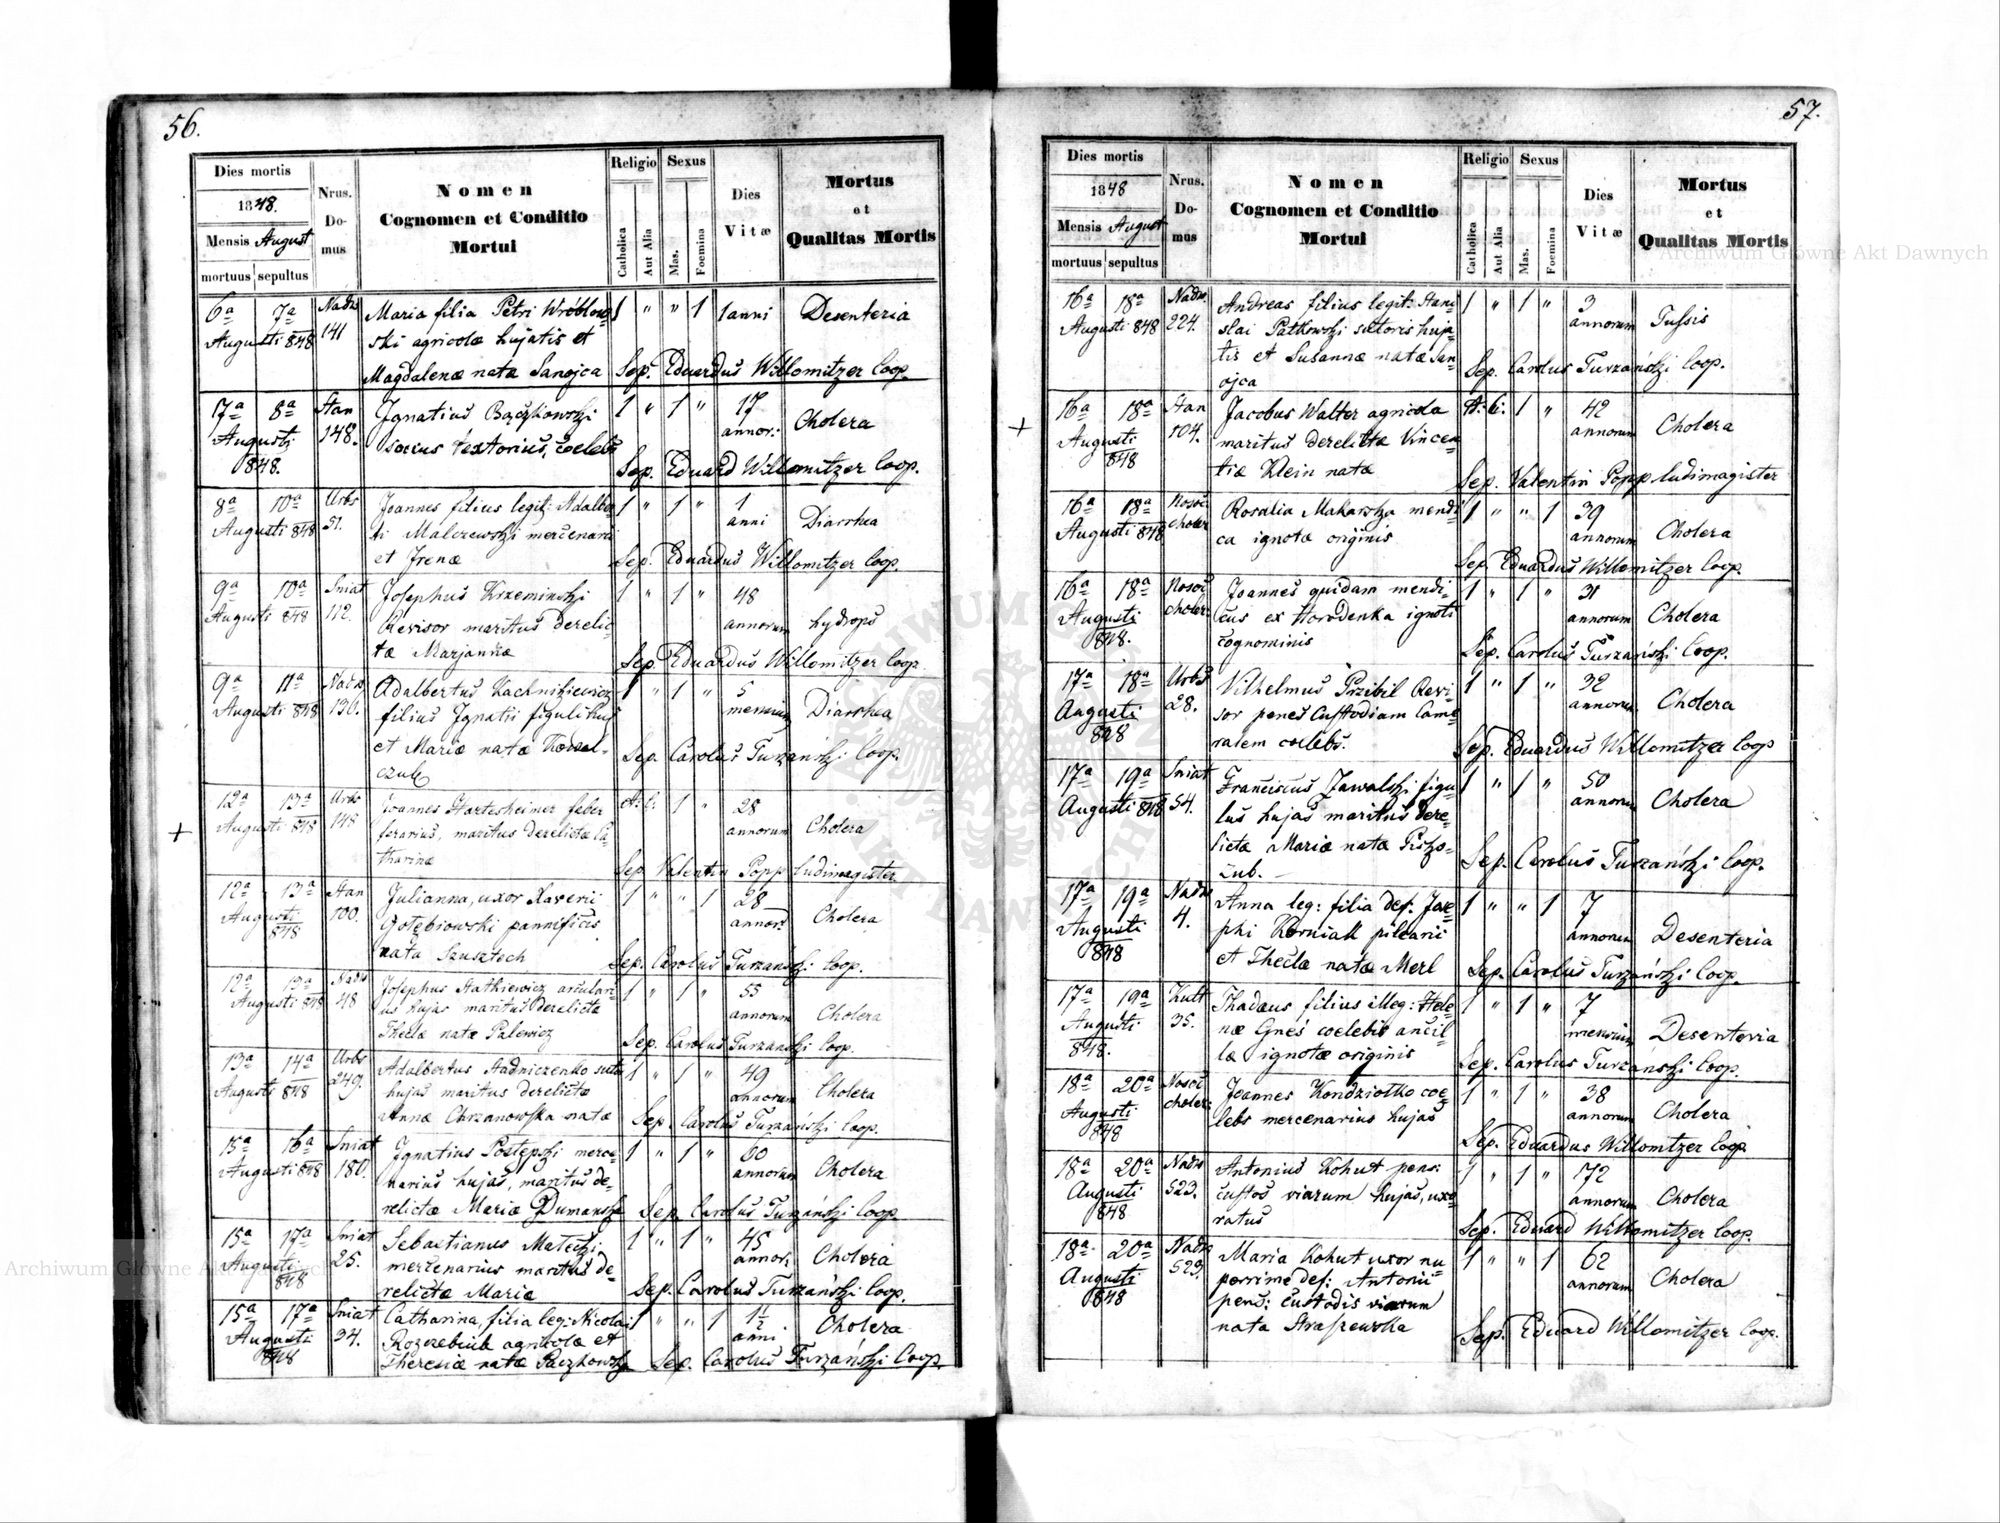 56.
Dies mortis
1848.
Mensis August
mortuus sepultus
Nrus.
Do-
mus
Nomen
Cognomen et Conditio
Mortui
Religio
Catholica
Aut Alia
Sexus
Mas.
Foemina
Dies
Vitæ
Mortus
et
Qualitas Mortis
6a 7a Nadw. Maria filia Petri Wróblew- 1 " " 1 1 anni Desenteria
Augusti 848 141 ski agricolæ hujatis et
Magdalenæ nata Sanojca Sep. Eduardus Willomitzer Coop.
7a 8a Stan Ignatius Bączkowski 1 " 1 " 17 Cholera
Augusti 148. socius textorius, coelebs annor:
848. Sep. Eduard Willomitzer Coop.
8a 10a Urbs Joannes filius legit: Adalber- 1 " 1 " 1
Augusti 848 51. ti Malczewski mercenarii anni Diarrhea
et Irenæ Sep. Eduardus Willomitzer Coop.
9a 10a Sniat Josephus Krzeminski 1 " 1 " 48
Augusti 848 112. Revisor maritus derelic- annorum hydrops
tæ Marjannæ Sep. Eduardus Willomitzer Coop.
9a 11a Nadw. Adalbertus 1 " 1 " 5
Augusti 848 130. filius Ignatii figuli hujus mensium Diarrhea
et Mariæ natæ Kowal-
czuk Sep. Carolus Turzański Coop.
12a 13a Urbs Joannes Hartesheimer faber A: C: 1 " 28
Augusti 848 148 ferarius, maritus derelictæ Ca- annorum Cholera
tharinæ Sep. Valentin Popp ludimagister
12a 13a Stan Julianna, uxor Xaverii 1 " " 1 28
Augusti 100. Gołębiowski pannificis annor: Cholera
848 nata Szusztech Sep. Carolus Turzański Coop.
12a 13a Nadw Josephus Hatkiewicz 1 " 1 " 55
Augusti 848 48 us hujas maritus derelictæ annorum Cholera
Theclæ natæ Palewicz Sep. Carolus Turzański Coop.
13a 14a Urbs Adalbertus Hadniczenko sutor 1 " 1 " 49
Augusti 848 249. hujas maritus derelictæ annorum Cholera
Annæ Chrzanowska natæ Sep. Carolus Turzański Coop.
15a 16a Sniat Ignatius Postępski merce- 1 " 1 " 60
Augusti 848 180. narius hujas, maritus de- annorum Cholera
relictæ Mariæ Dumanska Sep. Carolus Turzański Coop.
15a 17a Sniat Sebastianus Matecki 1 " 1 " 45
Augusti 25. mercenarius maritus de- annor: Cholera
848 relictæ Mariæ Sep. Carolus Turzański Coop.
15a 17a Sniat Catharina, filia leg: Nicolai 1 " " 1 1½ Cholera
Augusti 34. agricolæ et anni
848 Theresiæ natæ Paczkowski Sep. Carolus Turzański Coop.
57.
Dies mortis
1848
Mensis August
mortuus sepultus
Nrus.
Do-
mus
Nomen
Cognomen et Conditio
Mortui
Religio
Catholica
Aut Alia
Sexus
Mas.
Foemina
Dies
Vitæ
Mortus
et
Qualitas Mortis
16a 18a Nadw. Andreas filius legit: Stani- 1 " 1 " 3
Augusti 848 224. slai Patkowski sutoris huja- annorum Tussis
tis et Susannæ natæ San-
ojca Sep. Carolus Turzański Coop.
16a 18a Stan Jacobus Walter agricola A: C: 1 " 42
Augusti 104. maritus derelictæ Vincen- annorum Cholera
848 tiæ Klein natæ Sep. Valentin Popp ludimagister
16a 18a Nosoc Rosalia Makarska mendi- 1 " " 1 39
Augusti 848 choler ca ignotæ originis annorum Cholera
Sep. Eduardus Willomitzer Coop.
16a 18a Nosoc Joannes quidam mendi- 1 " 1 " 31
Augusti choler: cus ex Horodenka ignoti annorum Cholera
848. cognominis Sep. Carolus Turzański Coop.
17a 18a Urbs Vilhelmus Przibil Revi- 1 " 1 " 32
Augusti 28. sor penes Custodiam Came- annorum Cholera
848 ralem coelebs. Sep. Eduardus Willomitzer Coop
17a 19a Sniat Franciscus Zawalski figu- 1 " 1 " 50
Augusti 848 54. lus hujas maritus dere- annorum Cholera
lictæ Mariæ natæ
Sep. Carolus Turzański Coop.
17a 19a Nadw Anna leg: filia def: Jose- 1 " " 1 7
Augusti 4. phi Korniak pilearii annorum Desenteria
848 et Theclæ natæ Merl Sep. Carolus Turzański Coop.
17a 19a Kutt Thadæus filius illeg: Hele- 1 " 1 " 7
Augusti 35. næ Gneś coelebis ancil- mensium Desenteria
848. læ ignotæ originis Sep. Carolus Turzański Coop.
18a 20a Nosoc Joannes Kondziołko coe- 1 " 1 " 38
Augusti choler: lebs mercenarius hujas annorum Cholera
848 Sep. Eduardus Willomitzer Coop
18a 20a Nadw Antonius Kohut pens: 1 " 1 " 72
Augusti 523. custos viarum hujas, uxo- annorum Cholera
848 ratus Sep. Eduard Willomitzer Coop.
18a 20a Nadw Maria Kohut uxor nu- 1 " " 1 62
Augusti 523. perrime def: Antonii annorum Cholera
848 pens: custodis viarum
nata Straszewska Sep. Eduard Willomitzer Coop.
Archiwum Główne Akt Dawnych
Archiwum Główne Akt Dawnych
ARCHIWUM GŁÓWNE AKT DAWNYCH